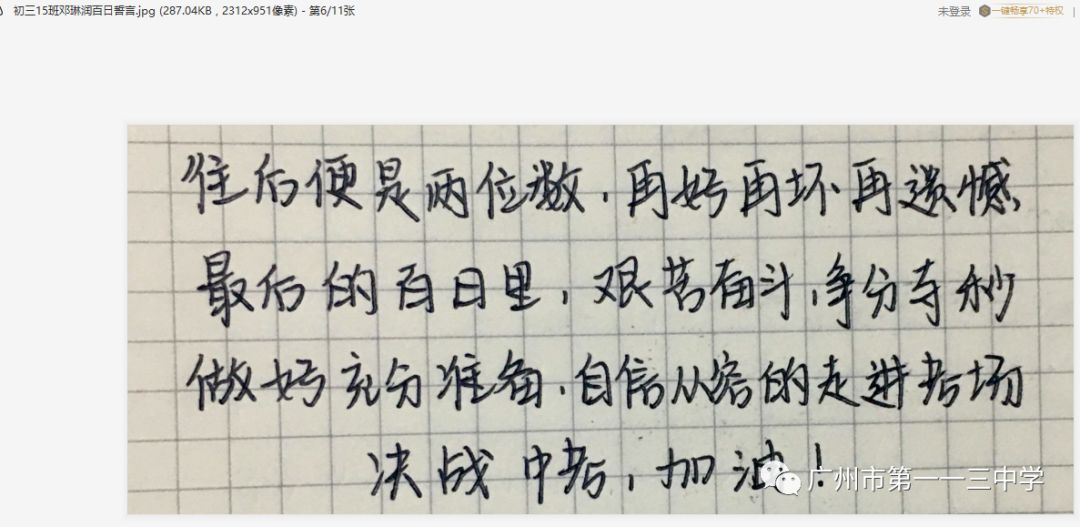 初三15班邓琳润百日誓言.jpg (287.04KB , 2312x951像素) - 第6/11张
未登录 一键畅享70+特权
往后便是两位数,再好再坏再遗憾,
最后的百日里,艰苦奋斗,争分夺秒
做好充分准备,自信从容的走进考场
决战中考,加油!
广州市第一一三中学